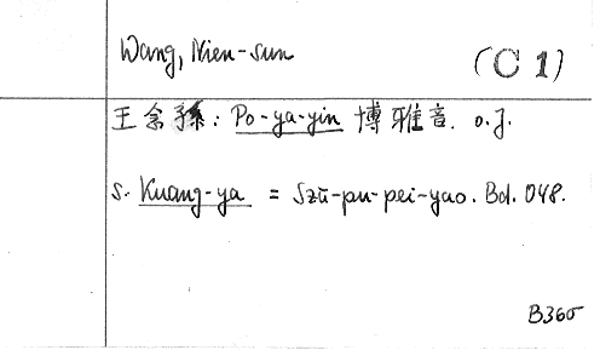 Wang, Nien-sun
(C 1)
王念孫: Po-ya-yin 博雅音. o.J.
s. Kuang-ya = Szŭ-pu-pei-yao. Bd. 048.
B365